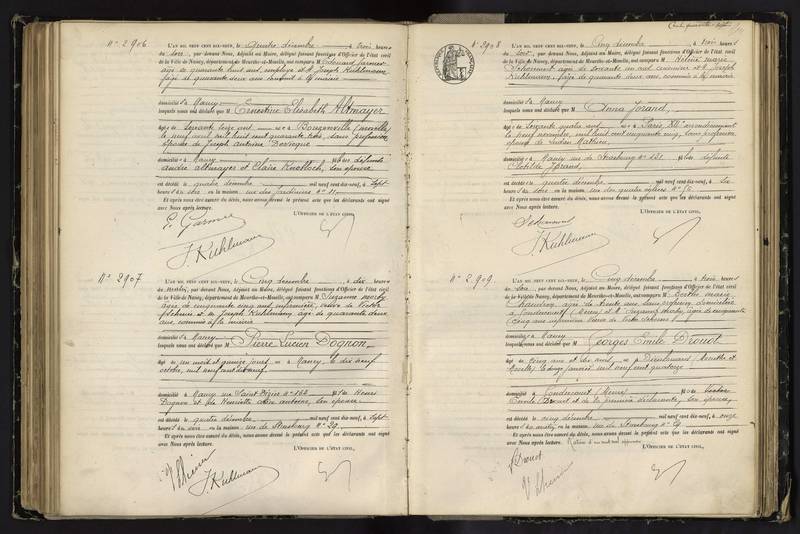 N° 2906
L'AN MIL NEUF CENT DIX-NEUF, le Quatre décembre à trois heures
du soir, par devant Nous, Adjoint au Maire, délégué faisant fonctions d'Officier de l'état civil
de la Ville de Nancy, département de Meurthe-et-Moselle, ont comparu M. Edouard Garnier
âgé de quarante huit ans, employé et M. Joseph Kuhlmann
âgé de quarante deux ans, commis à la mairie
domiciliés à Nancy
lesquels nous ont déclaré que M Ernestine Elisabeth Altmayer
âgée de Soixante seize ans née à Bouzonville (Moselle)
le neuf mil huit cent quarante trois, sans profession
épouse de Joseph Antoine
domiciliée à Nancy fille de défunts
André Altmayer et Claire Knobloch, son épouse
est décédée le quatre décembre mil neuf cent dix-neuf, à sept
heures du soir en la maison, rue des Jardiniers n° 11
Et après nous être assuré du décès, nous avons dressé le présent acte que les déclarants ont signé
avec Nous après lecture.
L'OFFICIER DE L'ÉTAT CIVIL,
E. Garnier
J. Kuhlmann
N° 2907
L'AN MIL NEUF CENT DIX-NEUF, le Cinq décembre à dix heures
du matin, par devant Nous, Adjoint au Maire, délégué faisant fonctions d'Officier de l'état civil
de la Ville de Nancy, département de Meurthe-et-Moselle, ont comparu M. Suzanne
âgée de cinquante cinq ans, infirmière, veuve de Victor
et de Joseph Kuhlmann, âgé de quarante deux
ans, commis à la mairie
domiciliés à Nancy
lesquels nous ont déclaré que M Pierre Lucien Dognon,
âgé de un mois et quinze jours né à Nancy, le dix neuf
octobre, mil neuf cent dix neuf
domicilié à Nancy rue Saint Dizier n° 144 fils de Henri
Dognon et de Henriette antoine, son épouse
est décédé le quatre décembre mil neuf cent dix-neuf, à sept
heures du soir en la maison, rue de Strasbourg n° 29
Et après nous être assuré du décès, nous avons dressé le présent acte que les déclarants ont signé
avec Nous après lecture.
L'OFFICIER DE L'ÉTAT CIVIL,
J. Kuhlmann
N° 2908
L'AN MIL NEUF CENT DIX-NEUF, le Cinq décembre à trois heures
du soir, par devant Nous, Adjoint au Maire, délégué faisant fonctions d'Officier de l'état civil
de la Ville de Nancy, département de Meurthe-et-Moselle, ont comparu M. Hélène Marie
âgée de soixante un ans, cuisinière et M. Joseph
Kuhlmann, âgé de quarante deux ans, commis à la mairie
domiciliés à Nancy
lesquels nous ont déclaré que M Anna Jorand,
âgée de Soixante quatre ans née à Paris, XII° arrondissement
le neuf novembre, mil huit cent cinquante cinq, sans profession
épouse de Mathieu
domiciliée à Nancy rue de Strasbourg n° 151 fille de défunte
Clotilde Jorand,
est décédée le quatre décembre mil neuf cent dix-neuf, à six
heures du soir en la maison, rue des quatre églises n°
Et après nous être assuré du décès, nous avons dressé le présent acte que les déclarants ont signé
avec Nous après lecture.
L'OFFICIER DE L'ÉTAT CIVIL,
J. Kuhlmann
N° 2909
L'AN MIL NEUF CENT DIX-NEUF, le Cinq décembre à trois heures
du soir, par devant Nous, Adjoint au Maire, délégué faisant fonctions d'Officier de l'état civil
de la Ville de Nancy, département de Meurthe-et-Moselle, ont comparu M. Berthe Marie
âgée de trente ans, sans profession, domiciliée
à Vaudoncourt (Meuse) et M. Suzanne âgée de cinquante
cinq ans infirmière veuve de Victor
domiciliée à Nancy
lesquelles nous ont déclaré que M Georges Emile Drouot
âgé de cinq ans et dix mois né à Dieulouard (Meurthe et
Moselle) le janvier mil neuf cent quatorze
domicilié à Vaudoncourt (Meuse) fils de
Emile Drouot et de la première déclarante, son épouse,
est décédé le cinq décembre mil neuf cent dix-neuf, à onze
heures du matin en la maison, rue de Strasbourg n° 29
Et après nous être assuré du décès, nous avons dressé le présent acte que les déclarants ont signé
avec Nous après lecture.
L'OFFICIER DE L'ÉTAT CIVIL,
Drouot